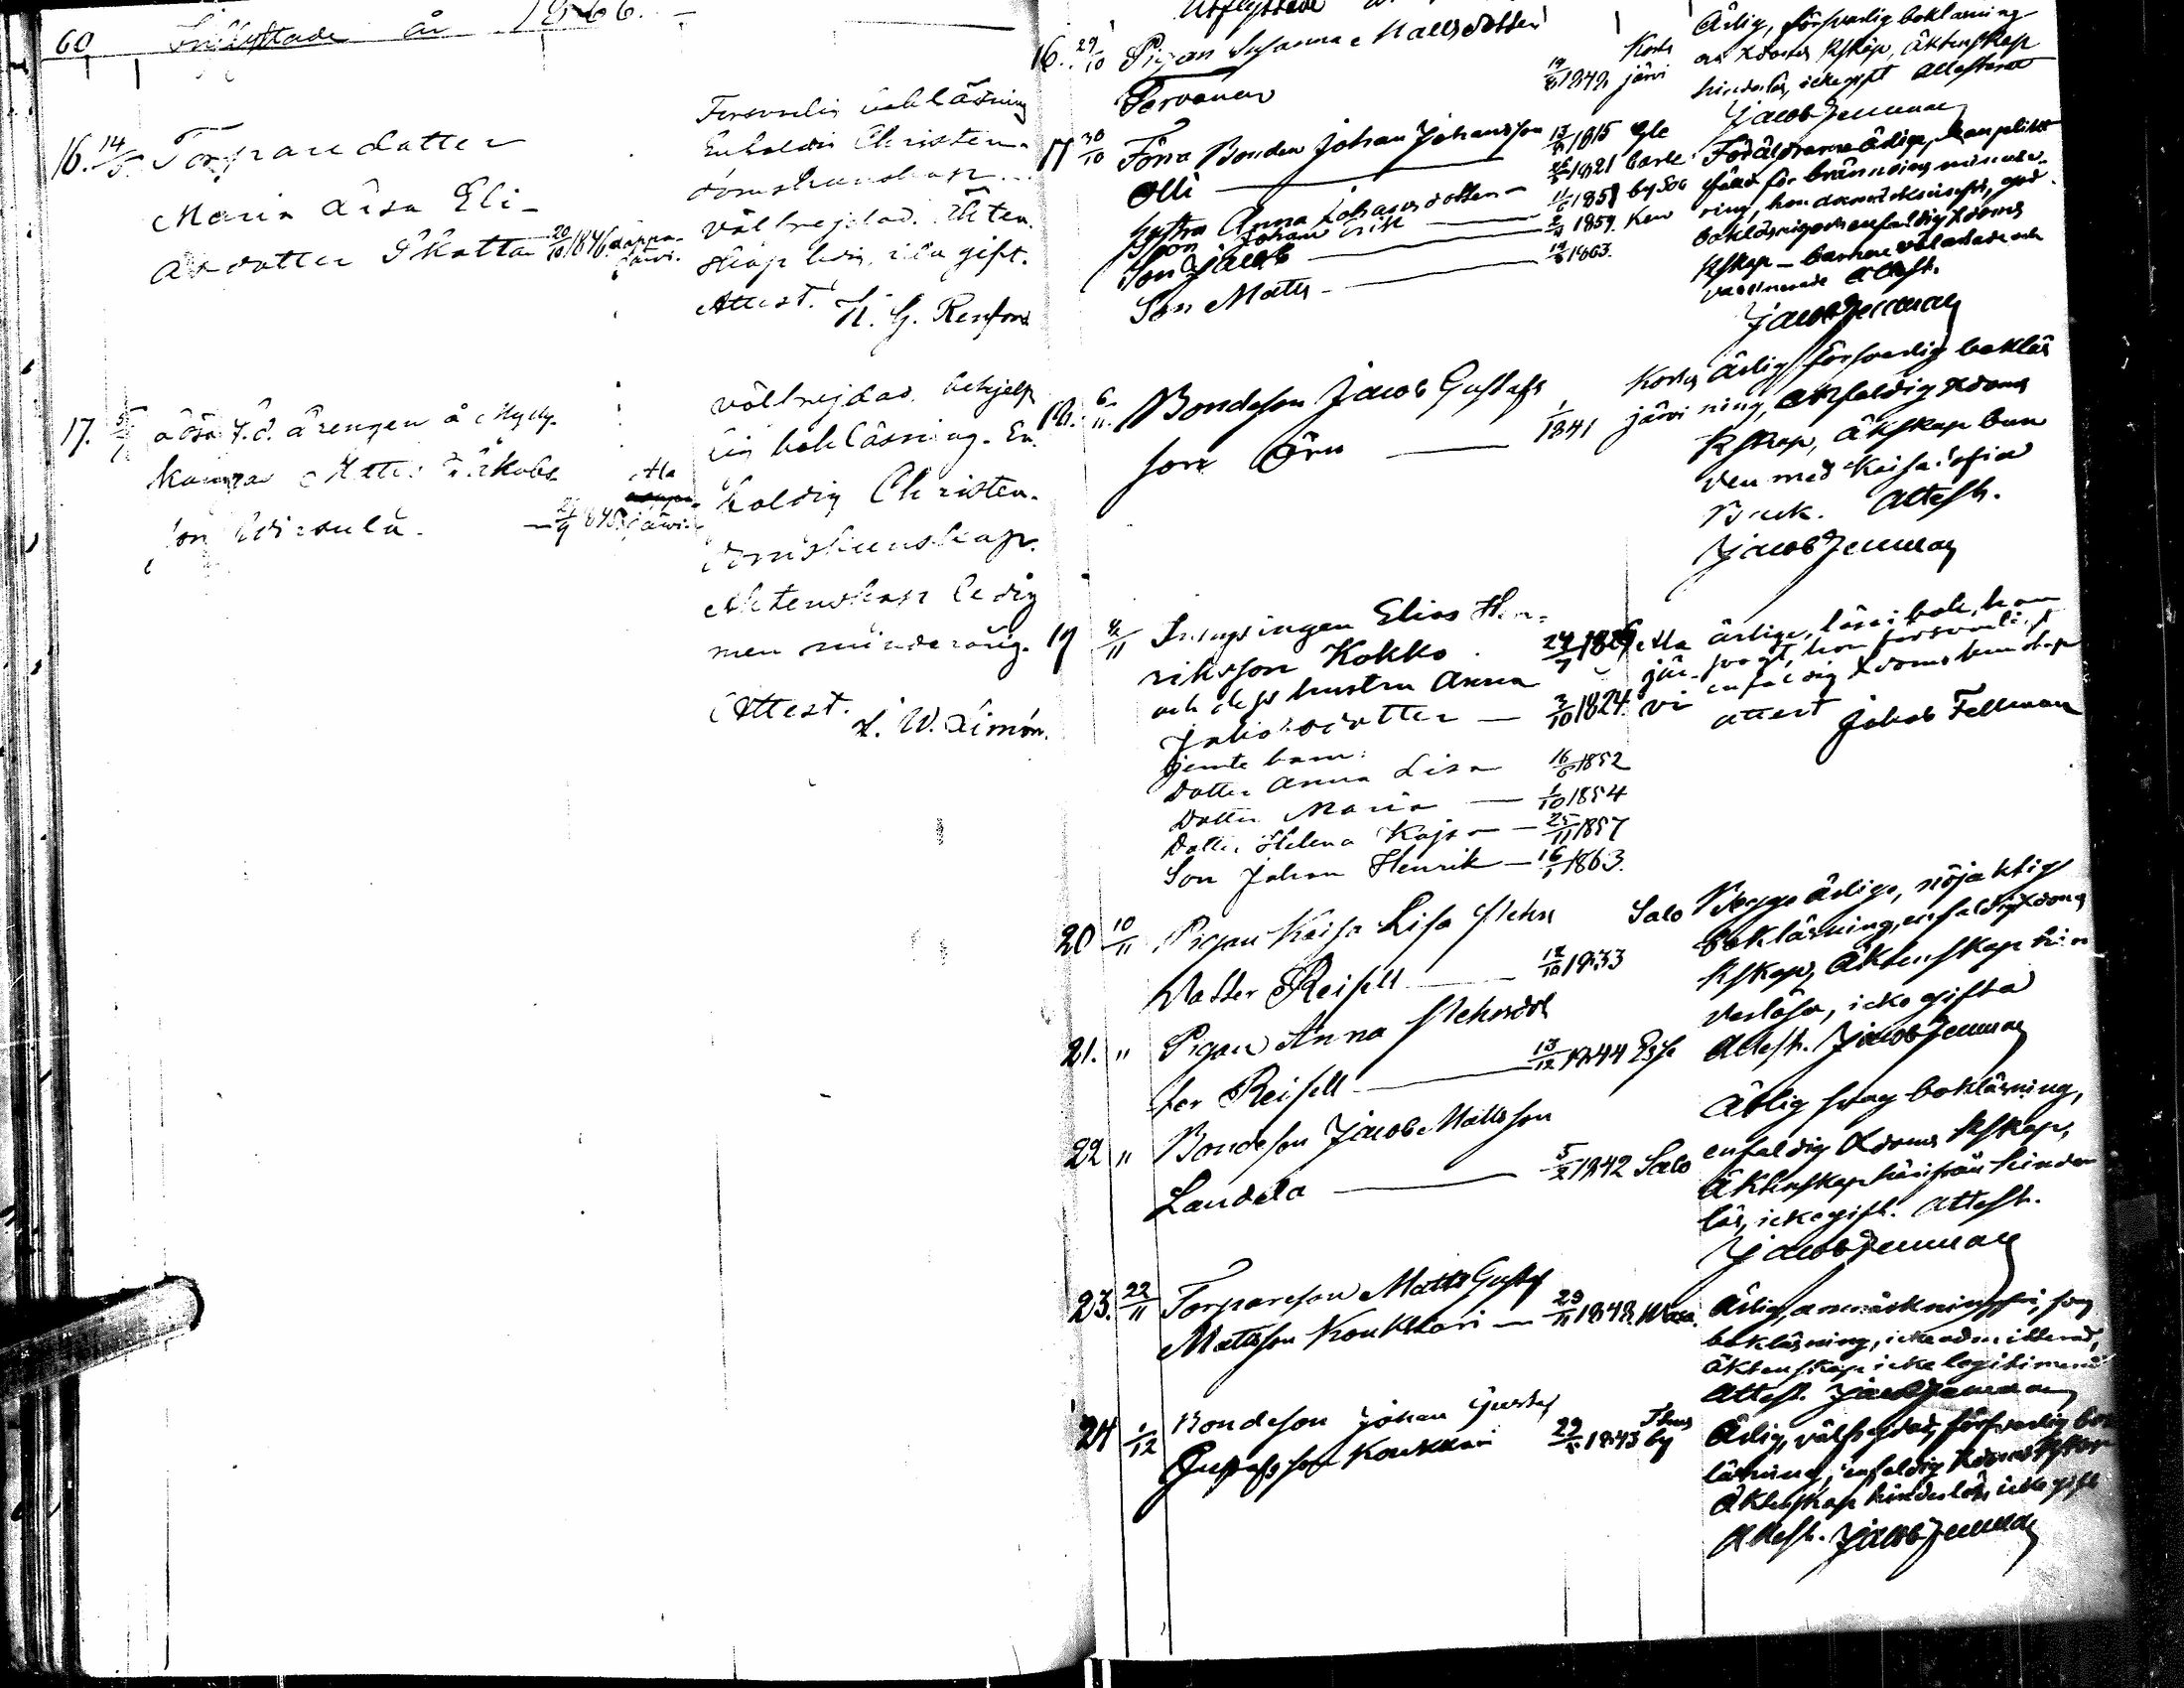 60 Inflyttade år 1866.
16. 14/5 Torparedotter
Maria Lisa Eli-
asdotter Skatta 20/10 1846. Lappa-
järvi.
Försvarlig bokläsning
Enfaldig Christen-
domskunskap.
välfrejdad. Äkten-
skap ledig, icke gift.
Attest. H. G. Renfors
17. 5/ Lösa f.d. drengen å
Matts Jakobs-
son 1845. Ala
järvi.
välfrejdad, behjelp-
lig bokläsning. En-
faldig Christen-
domskunskap.
Äktenskap ledig
men minderårig.
Attest.
L. W. Limón.
Utflyttade
16. 29/10 Pigan Susanna Mattsdotter
Tervonen 1842 Kortes
järvi
Ärlig, försvarlig bokläsning
äktenskap
hinderlös, icke gift Attesteras
Jacob Fellman
17 30/10 Förra Bonden Johan Johansson 1815 Gle
Olli
hustru Anna Johansdotter 1821 Carle
Son Johan Erik 1858 by Soc
Son Jacob 1859. Kem
Son Matts 1863.
Föräldrarne ärlige, han pliktat
för bränvins
ring, hon god
bokläsning och enfaldig Xdoms
kskap – barnen välartade och
vaccinerade Attest.
Jacob Fellman
18. 6/11. Bondeson Jacob Gustafs
son Örn 1841 Kortes
järvi
ärlig, försvarlig bokläs
ning, enfaldig Xdoms
kskap, Äkskap bun
den med Kajsa Sofia
Buck. Attest.
Jacob Fellman
19 8/11 Inhysingen Elias Hen-
riksson Kokko 24/7 1826 Ala
och dess hustru Anna jär-
Jakobsdotter 3/10 1824. vi
jemte barn:
Dotter Anna Lisa 16/6 1852
Dotter Maria 1/10 1854
Dotter Helena Kajsa 25/11 1857
Son Johan Henrik 16/1 1863.
ärlige, läsa i bok, han
svagt, hon försvarligt
enfaldig Xdomskunskap
attest Jakob Fellman
20 10/11 Pigan Kaisa Lisa Mehes
dotter Reipelt 12/10 1833 Salo
Begge ärlige, nöjaktig
bokläsning, enfaldig Xdoms
kskap, Äktenskap hin
derlösa, icke gifta
Attest. Jacob Fellman
21. " Pigan Anna Mehesdot
ter Reipelt 13/12 1844 Esse
22 " Bondeson Jacob Mattsson
Landela 5/2 1842 Salo
Ärlig svag bokläsning,
enfaldig Xdoms kskap,
Äktenskap härifrån hinder
lös, icke gift. Attest.
Jacob Fellman
23. 22/11 Torpareson Matts Gustaf
Mattsson Koukkari 29/11 1848. Wasa.
Ärlig, anmärkningsfri, svag
bokläsning, icke admitterad,
Äktenskap icke legitimerad
Attest. Jacob Fellman
24 1/12 Bondeson Johan Gustaf
Gustafsson Koukkari 29/ 1843 by
Ärlig, välfrejdad, försvarlig bok
läsning, enfaldig Xdoms kskap
Äktenskap hinderlös, icke gift
Attest. Jacob Fellman